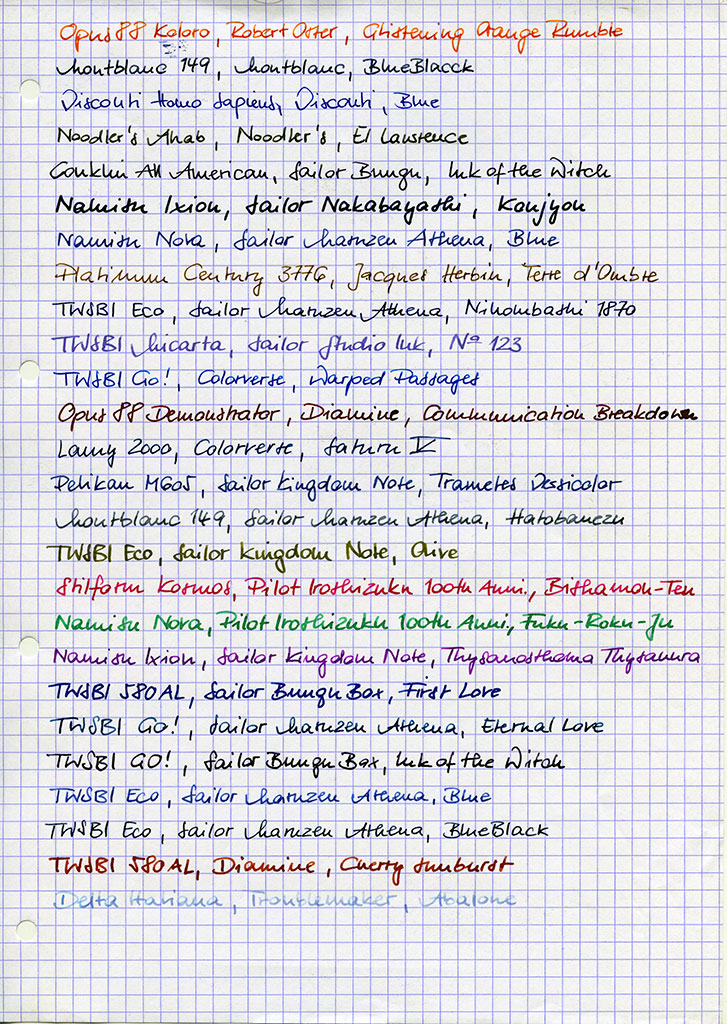 Opus 88 Koloro, Robert Oster, Glistening Orange Rumble
Montblanc 149, Montblanc, BlueBlacck
Visconti Homo Sapiens, Visconti, Blue
Noodler's Ahab, Noodler's, El Lawrence
Conklin All American, Sailor Bungu, Ink of the Witch
Namisu Ixion, Sailor Nakabayashi, Konjyou
Namisu Nova, Sailor Maruzen Athena, Blue
Platinum Century 3776, Jacques Herbin, Terre d'Ombre
TWSBI Eco, Sailor Maruzen Athena, Nihombashi 1870
TWSBI Micarta, Sailor Studio Ink, Nº 123
TWSBI Go!, Colorverse, Warped Passages
Opus 88 Demonstrator, Diamine, Communication Breakdown
Lamy 2000, Colorverse, Saturn V
Pelikan M605, Sailor Kingdom Note, Trametes Versicolor
Montblanc 149, Sailor Maruzen Athena, Hatobanezu
TWSBI Eco, Sailor Kingdom Note, Olive
Stilform Kosmos, Pilot Iroshizuku 100th Anni., Bishamon-Ten
Namisu Nova, Pilot Iroshizuku 100th Anni., Fuku-Roku-Ju
Namisu Ixion, Sailor Kingdom Note, Thysanosthoma Thysanura
TWSBI 580AL, Sailor Bungu Box, First Love
TWSBI Go!, Sailor Maruzen Athena, Eternal Love
TWSBI GO!, Sailor Bungu Box, Ink of the Witch
TWSBI Eco, Sailor Maruzen Athena, Blue
TWSBI Eco, Sailor Maruzen Athena, BlueBlack
TWSBI 580AL, Diamine, Cherry Sunburst
Delta Italiana, Troublemaker, Abalone